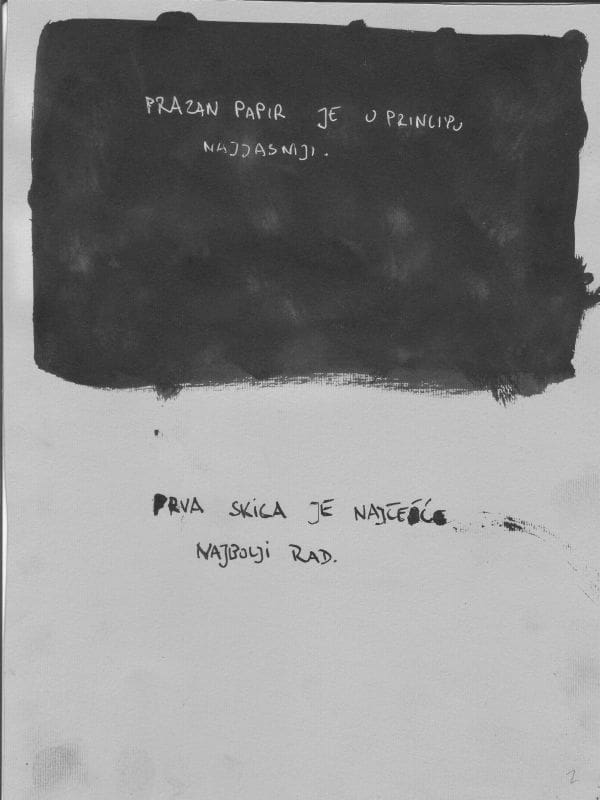 PRAZAN PAPIR JE U PRINCIPU
NAJJASNIJI.
PRVA SKICA JE NAJČEŠĆE
NAJBOLJI RAD.
2